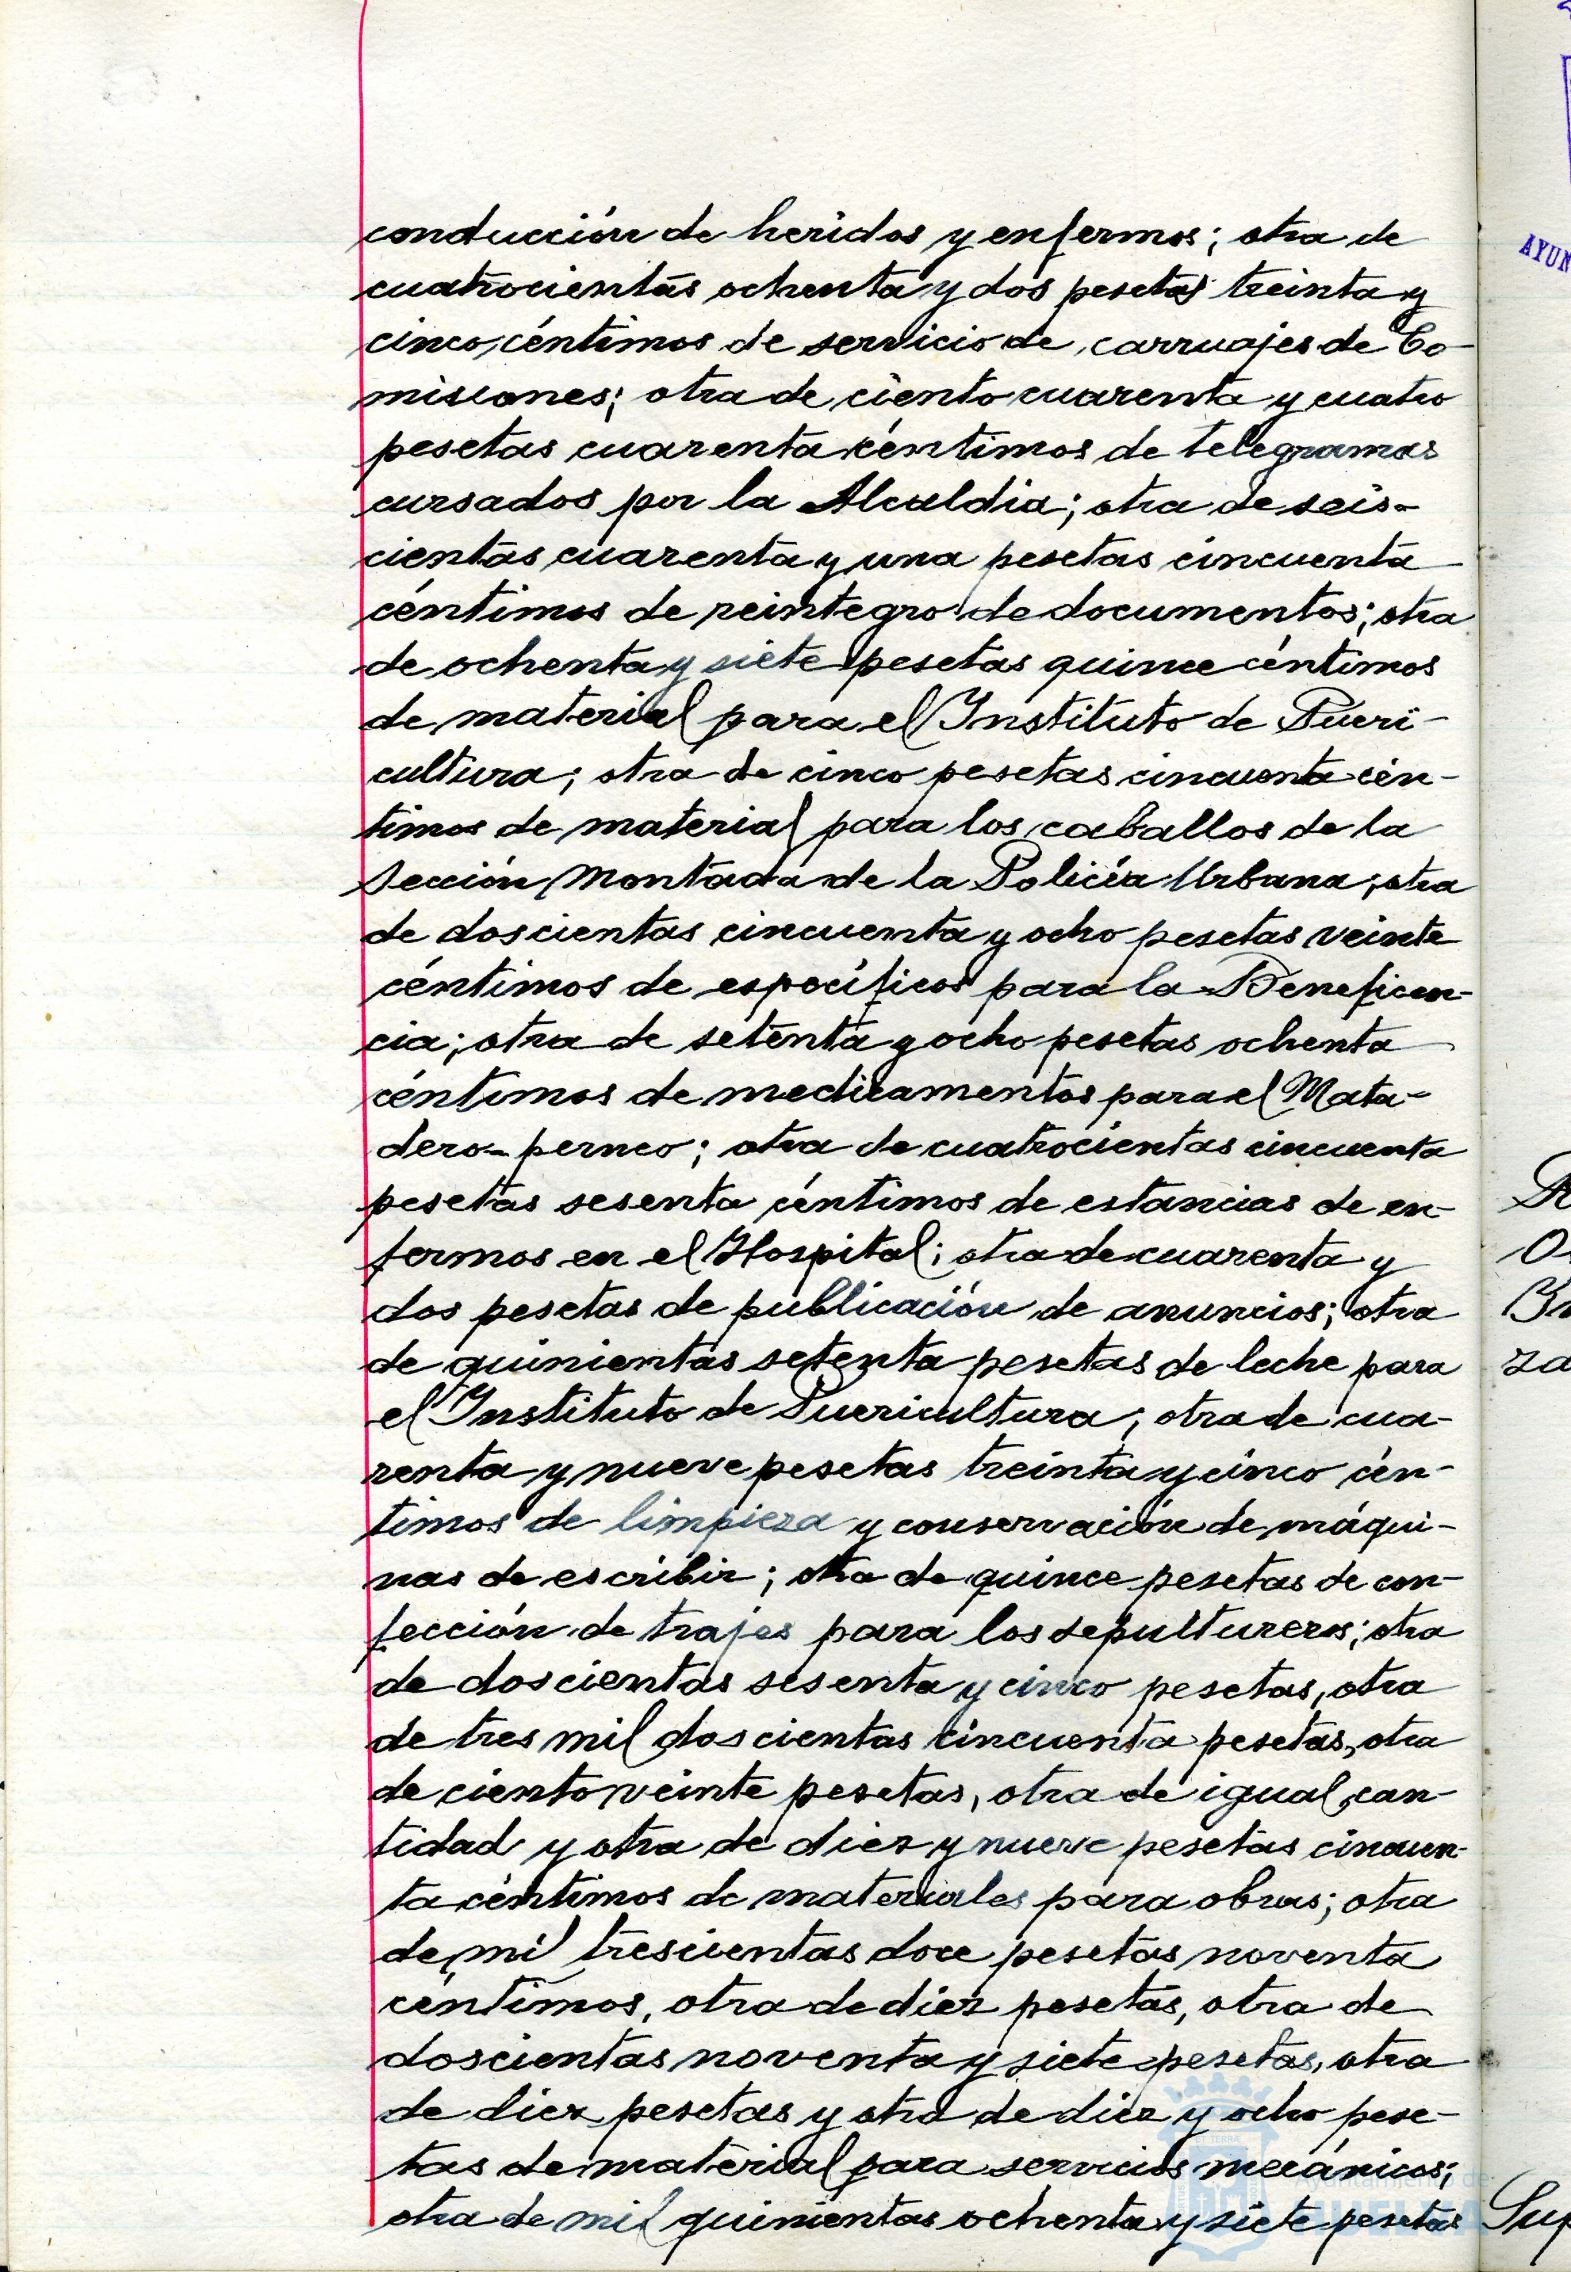 conducción de heridos y enfermos; otra de
cuatrocientas ochenta y dos pesetas treinta y
cinco céntimos de servicio de carruajes de Co-
misiones; otra de ciento cuarenta y cuatro
pesetas cuarenta céntimos de telegramas
cursados por la Alcaldia; otra de seis-
cientas cuarenta y una pesetas cincuenta
céntimos de reintegro de documentos; otra
de ochenta y siete pesetas quince céntimos
de material para el Instituto de Pueri-
cultura; otra de cinco pesetas cincuenta cén-
timos de material para los caballos de la
Sección Montada de la Policía Urbana; otra
de doscientas cincuenta y ocho pesetas veinte
céntimos de específicos para la Beneficen-
cia; otra de setenta y ocho pesetas ochenta
céntimos de medicamentos para el Mata-
dero-perneo; otra de cuatrocientas cincuenta
pesetas sesenta céntimos de estancias de en-
fermos en el Hospital; otra de cuarenta y
dos pesetas de publicación de anuncios; otra
de quinientas setenta pesetas de leche para
el Instituto de Puericultura; otra de cua-
renta y nueve pesetas treinta y cinco cén-
timos de limpieza y conservación de máqui-
nas de escribir; otra de quince pesetas de con-
fección de trajes para los sepultureros; otra
de doscientas sesenta y cinco pesetas, otra
de tres mil doscientas cincuenta pesetas, otra
de ciento veinte pesetas, otra de igual can-
tidad y otra de diez y nueve pesetas cincuen-
ta céntimos de materiales para obras; otra
de mil trescientas doce pesetas noventa
céntimos, otra de diez pesetas, otra de
doscientas noventa y siete pesetas, otra
de diez pesetas y otra de diez y ocho pese-
tas de material para servicios mecánicos;
otra de mil quinientas ochenta y siete pesetas
AYUN
za
Sup
Ayuntamiento de
HUELVA